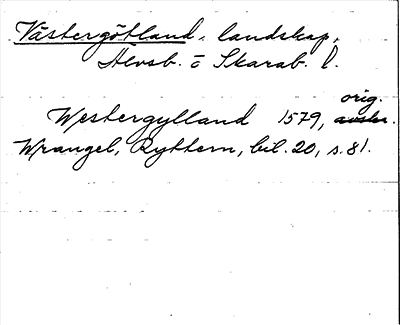 Västergötland, landskap,
Älvsb. o Skarab. l.
orig.
Westergylland 1579, avskr.
Wrangel, Ryttern, bil. 20, s. 81.